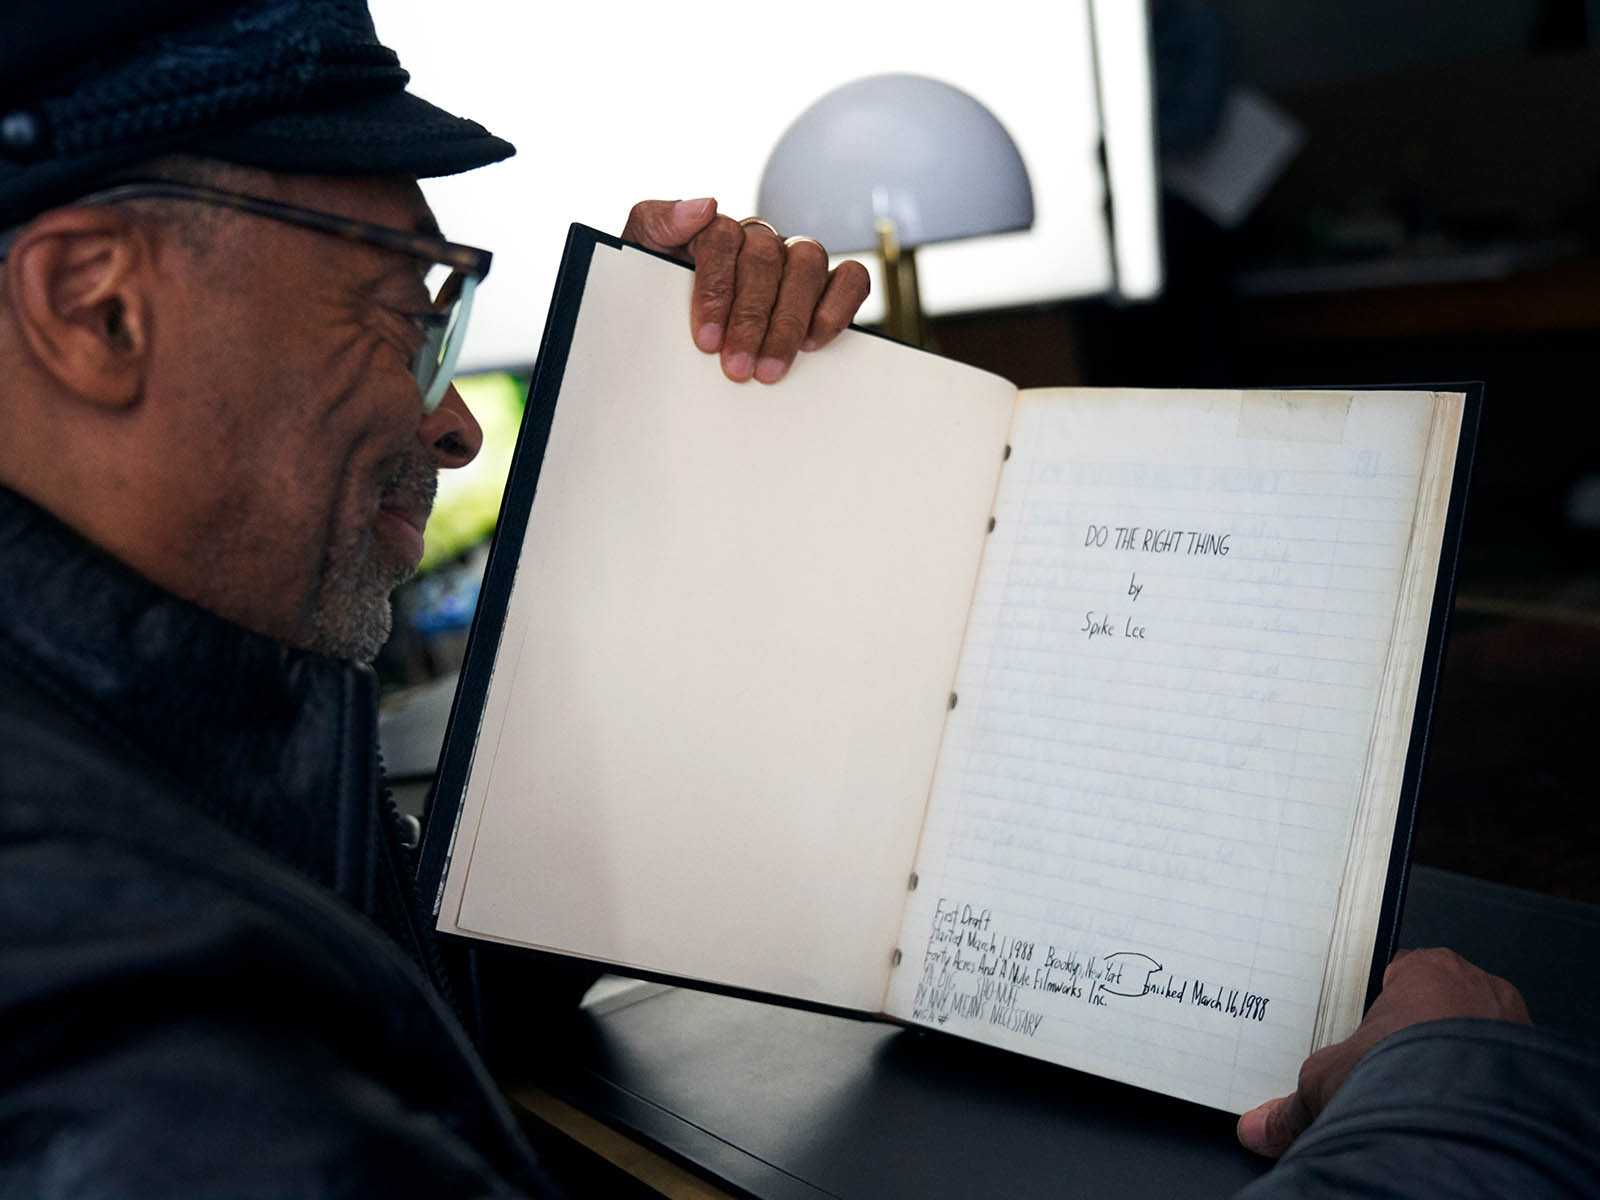 DO THE RIGHT THING
by
Spike Lee
First Draft
Started March 1, 1988 Brooklyn, New York finished March 16, 1988
Forty Acres And A Mule Filmworks Inc.
YA-DIG SHO-NUFF
BY ANY MEANS NECESSARY
WGA #